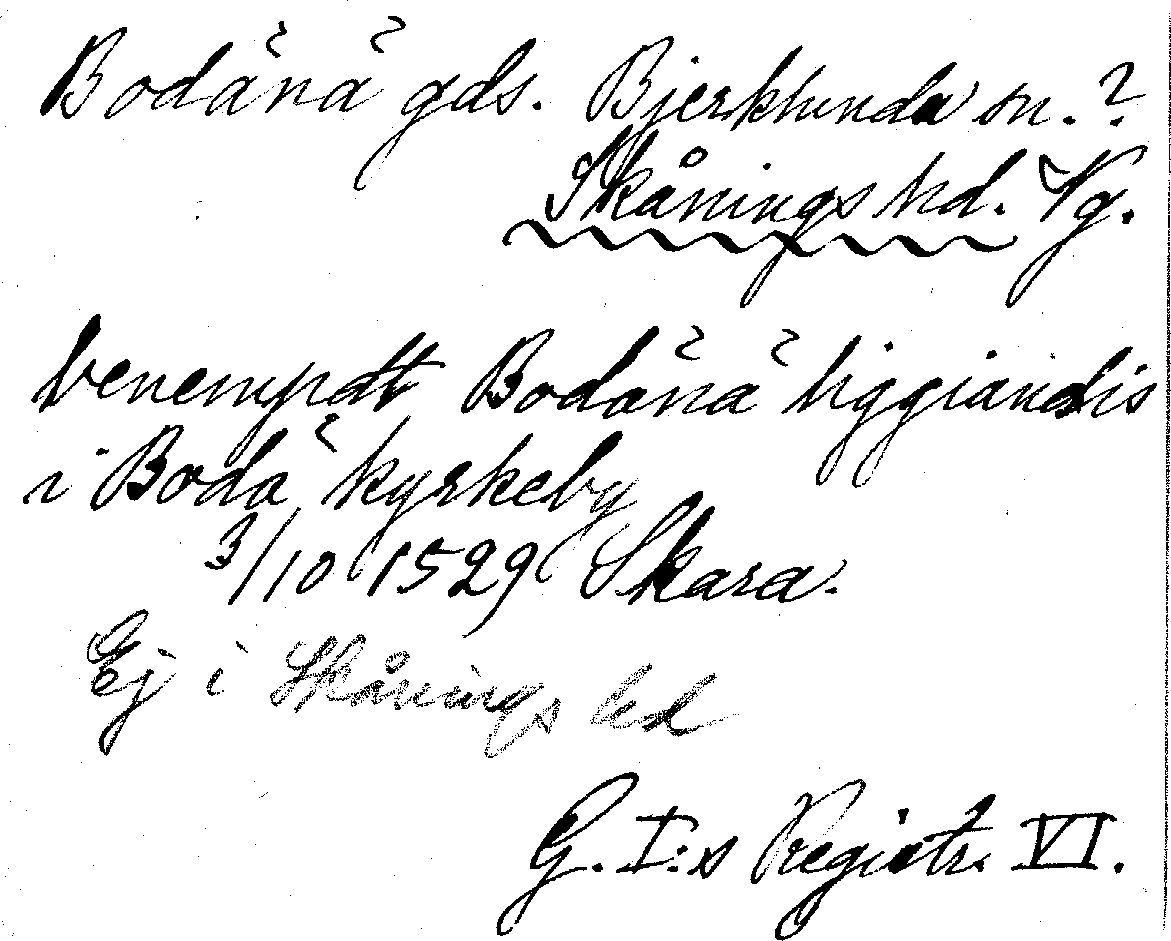 Bodänä gds. Bjerklunda sn.?
Skånings hd. Vg.
benempdt Bodänä liggiandis
i Boda kyrkeby
3/10 1529 Skara.
Ej i Skånings hd
G. I:s Registr. VI.